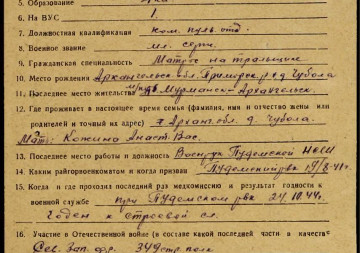 5. Образование
6. На ВУС 1.
7. Должностная квалификация ком. пульотд.
8. Военное звание мл. серж.
9. Гражданская специальность Матрос на тральщик
10. Место рождения Архангельск. обл. Приморск. р. д. Чубола
11. Последнее место жительства Мурманск-Архангельск.
12. Где проживает в настоящее время семья (фамилия, имя и отчество жены или
родителей и точный на адрес) Арханг. обл. д. Чубола.
Мать: Кожина Анаст. Вас.
13. Последнее место работы и должность Военрук Пудемской НСШ
14. Каким райгорвоенкоматом и когда призван Пудемский рвк 19/8-41г.
15. Когда и где проходил последний раз медкомиссию и результат годности к
военной службе при Пудемском рвк 24.10.44г.
Годен к строевой сл.
16. Участие в Отечественной войне (в составе какой последней части и в качестве
Сев. Зап. фр. 349 стр. полк